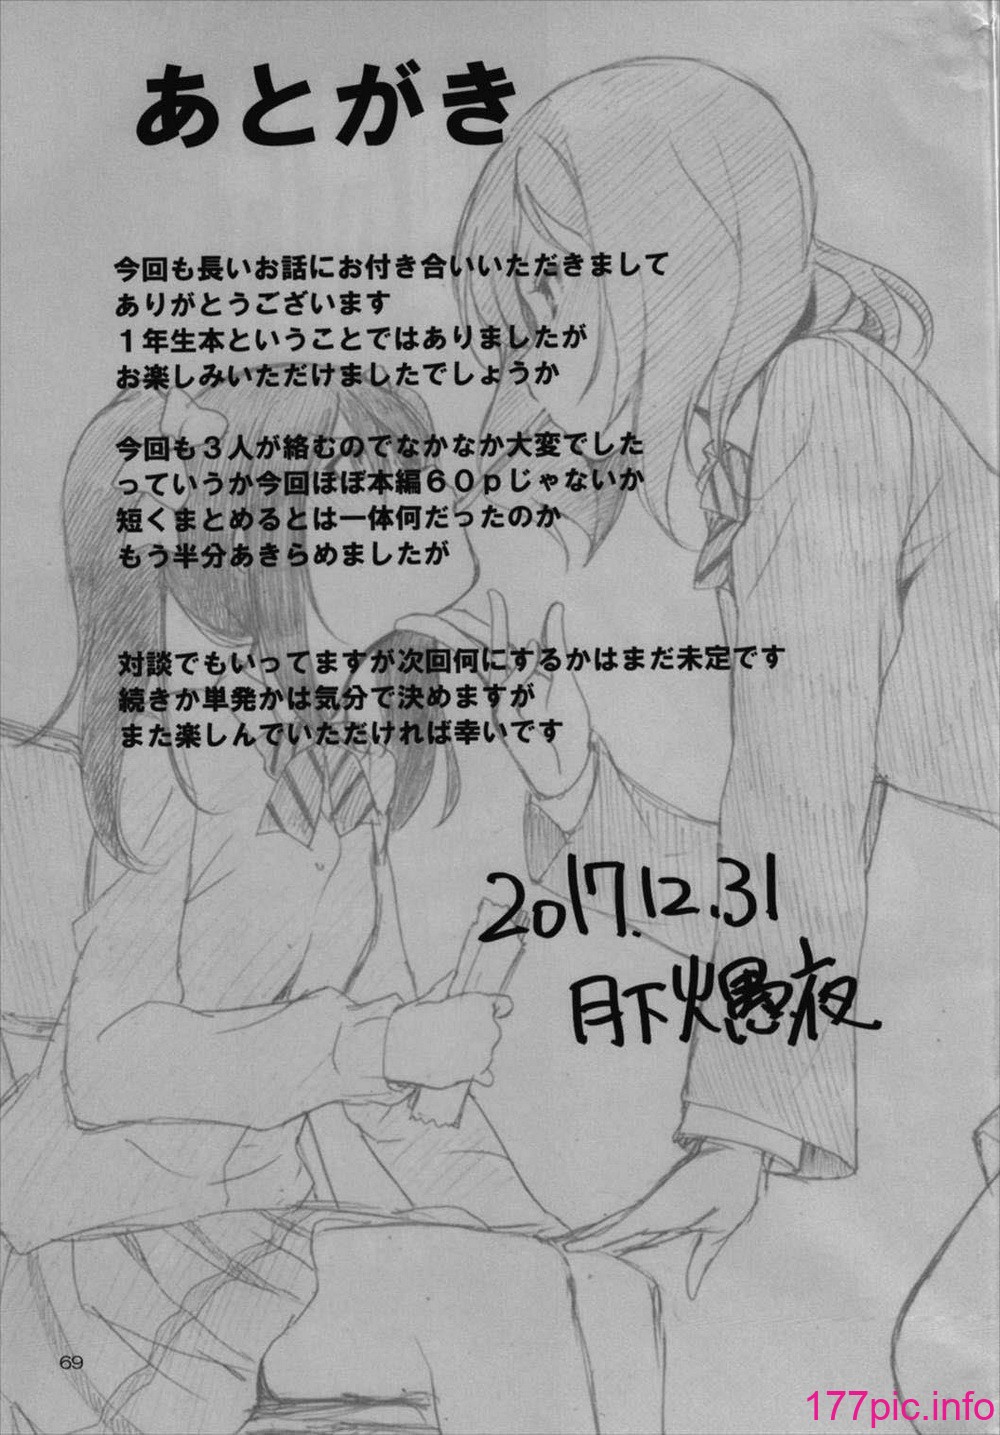 あとがき
今回も長いお話にお付き合いいただきまして
ありがとうございます
１年生本ということではありましたが
お楽しみいただけましたでしょうか
今回も３人が絡むのでなかなか大変でした
っていうか今回ほぼ本編６０ｐじゃないか
短くまとめるとは一体何だったのか
もう半分あきらめましたが
対談でもいってますが次回何にするかはまだ未定です
続きか単発かは気分で決めますが
また楽しんでいただければ幸いです
2017.12.31
月下火愚夜
69
177pic.info